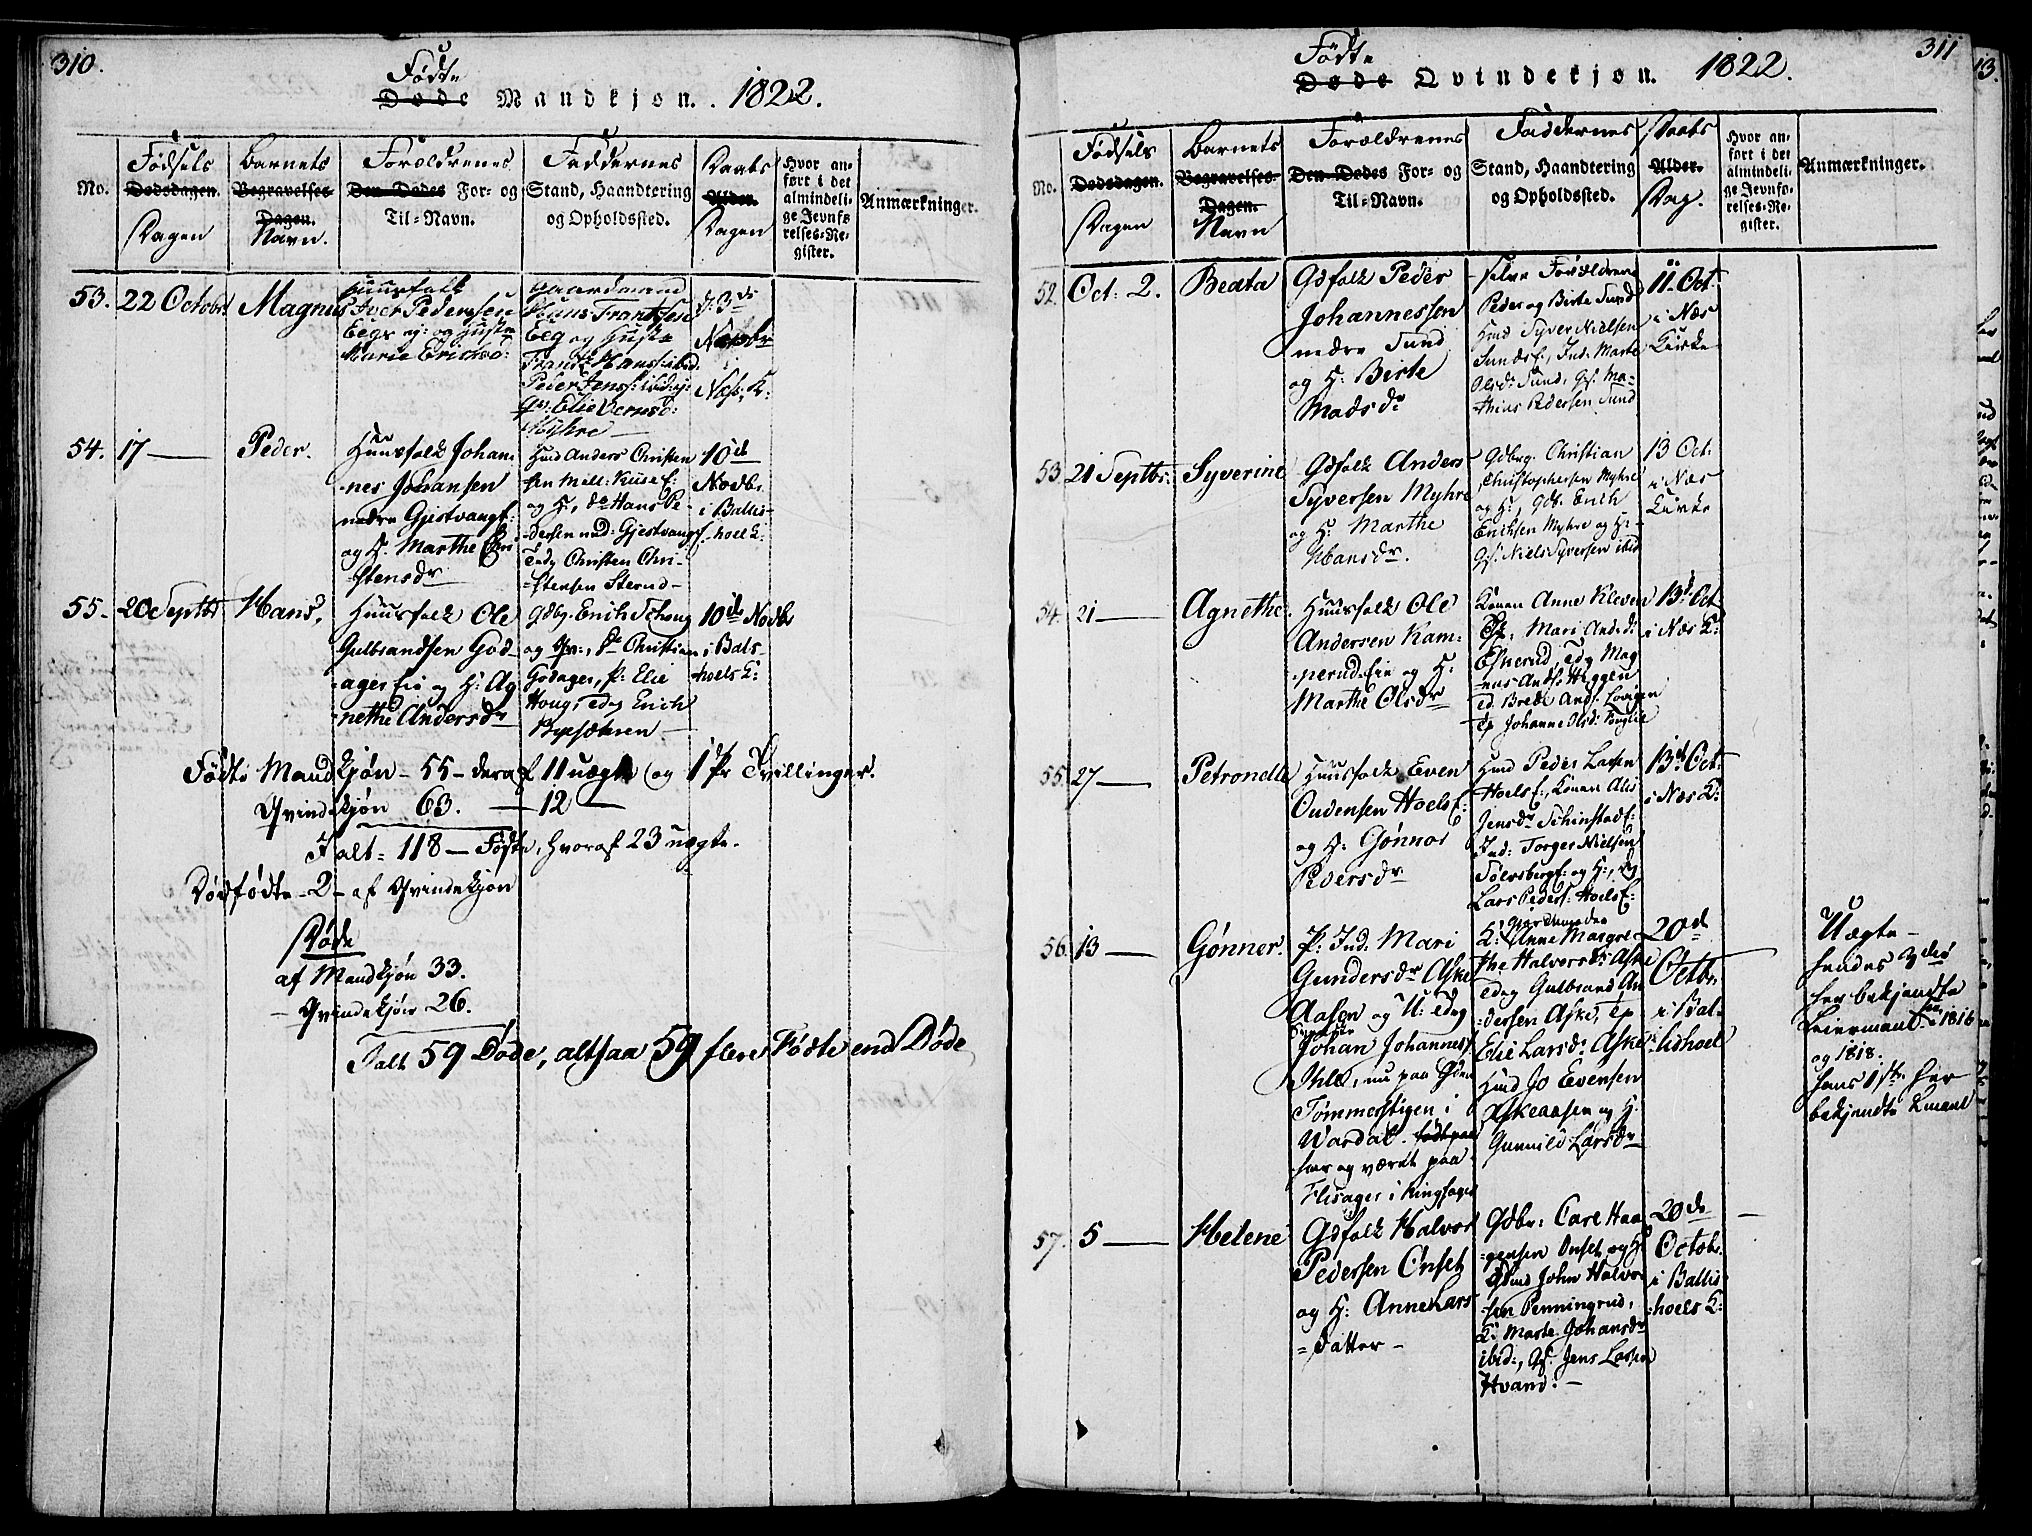 310.
Fødte
Døde Mandkjøn. 1822.
No.
Fødsels
Dødsdagen.
Dagen
Barnets
Begravelses-
Dagen.
Navn.
Forældrenes
Den Dødes For- og
Til-Navn.
Faddernes
Stand, Haandtering
og Opholdssted.
Daabs
Alder.
Dagen
Hvor an-
ført i det
almindeli-
ge Jevnfø-
relses-Re-
gister.
Anmærkninger.
53. 22 Octobr. Magnus
Huusfolk
Iver Pedersen
Eegs ej: og Hustr
Marie Ericksd:
Gaardmand
Hans Frantsen
Eeg og Hustr
Frantz Hanss: ibid.
Peder Jenss: ibid: ej:
Elie Berntsd:
Myhre
d: 3de
Novbr
i
Næs K:
54. 17 — Peder.
Huusfolk Johan-
nes Johansen
nedre Gjestvang E:
og H: Marthe Chri-
stensdr
Huusmd Anders Christen-
sen Mell: Kiise E:
og H:, do Hans Pe-
dersen ned: Gjestvang E:
Tndg Christen Chri-
stensen Sterud —
10de
Novbr.
i Ballis-
hoel K:
55. 20 Septbr Hans.
Huusfolk Ole
Gulbrandsen God-
ager Eie og H: Ag-
nethe Andersdr
Gdbr. Erich Schoug
og Qv:, do Christian
Godager, P: Elie
Houg, Tdg Erich
Bysæhren —
10de Novbr
i Bals-
hoels K:
Fødte Mandkjøn — 55 — deraf 11 uægte (og 1 Pr Tvillinger.
Qvindekjøn 63. — 12 —
I alt = 118 — Fødte, hvoraf 23 uægte.
Dødfødte — 2 — af Qvindekjøn
Døde
af Mandkjøn 33.
— Qvindekjøn 26.
I alt 59 Døde, altsaa 59 flere Fødte end Døde
311
Fødte
Døde Qvindekjøn. 1822.
No.
Fødsels
Dødsdagen.
Dagen
Barnets
Begravelses-
Dagen.
Navn
Forældrenes
Den Dødes For- og
Til-Navn.
Faddernes
Stand, Haandtering
og Opholdssted.
Daabs
Alder.
Dag.
Hvor an-
ført i det
almindeli-
ge Jevnfø-
relses-Re-
gister.
Anmærkninger.
52. Oct: 2. Beata
Gdfolk Peder
Johannessen
nedre Sund
og H: Birte
Madsdr
selve Forældrene
Peder og Birte Sund
Huusmd Syver Nielsen
Sunds E:, Ind: Marte
Olsdr Sund, Gs: Ma-
thias Pedersen Sund
11. Oct.
i Næs
Kirke
53. 21 Septbr: Syverine
Gdfolk Anders
Syversen Myhre
og H: Marthe
Hansdr.
Gdbrg. Christian
Christophersen Myhre
og H:, Gdb. Erich
Erichsen Myhre og H:
Gs: Niels Syversen ibid
13 Oct.
i Næs
Kirke
54. 21 — Agnethe
Huusfolk Ole
Andersen Kam-
perud Eie og H:
Marthe Olsdr
Konen Anne Kleven
Tp: Mari Andsdr
Esperud, Tdg Mag-
nus Ands: Heggen
td. Brede Ands: Lovgen
Tp Johanne Olsd: Fuglie
13d Oct
i Næs K:
55. 27 — Petronelle
Huusfolk Even
Oudensen Hoels E:
og H: Gønnor
Pedersdr
Huusmd Peder Larsen
Hoels E:, Konen Alis
Jensdr Schinstad E:
Ind: Torger Nielsen
Tølvsberg E: og H:, dg
Lars Peders: Hoels E:
13d Oct:
i Næs K:
56. 13 — Gønner.
P: Ind: Mari
Gundersdr Aske
Aasen og U: Tdg
Johan Johannesf
Ihle, nu paa Gden
Tømmerstigen i
Wardal. født paa
har og været paa
Flisager i Ringsager
K: Gaardmanden
Anne Margre-
the Halvorsdr Aske
Tdg Gulbrand An-
dersen Aske, Tp
Elie Larsdr Aske
Huusmd Jo Evensen
Askeaasen og H:
Gunnild Larsdr
20de
Octbr.
i Bal-
lishoel
Uægte —
hendes 3die
her bekjendte
Leiermaal i 1816
og 1818.
hans 1ste her
bekjendte Lmaal
57. 5 — Helene
Gdfolk Halvor
Pedersen Onset
og H: Anne Lars-
Datter —
Gdbr: Carl Haa-
gensen Onset og H:
Huusmd John Halvor-
sen Penningrud,
K: Marte Johansdr
ibid:, Gs: Jens Larsen
Hvand: —
20de
Octobr.
i Ballis-
hoels K:
—